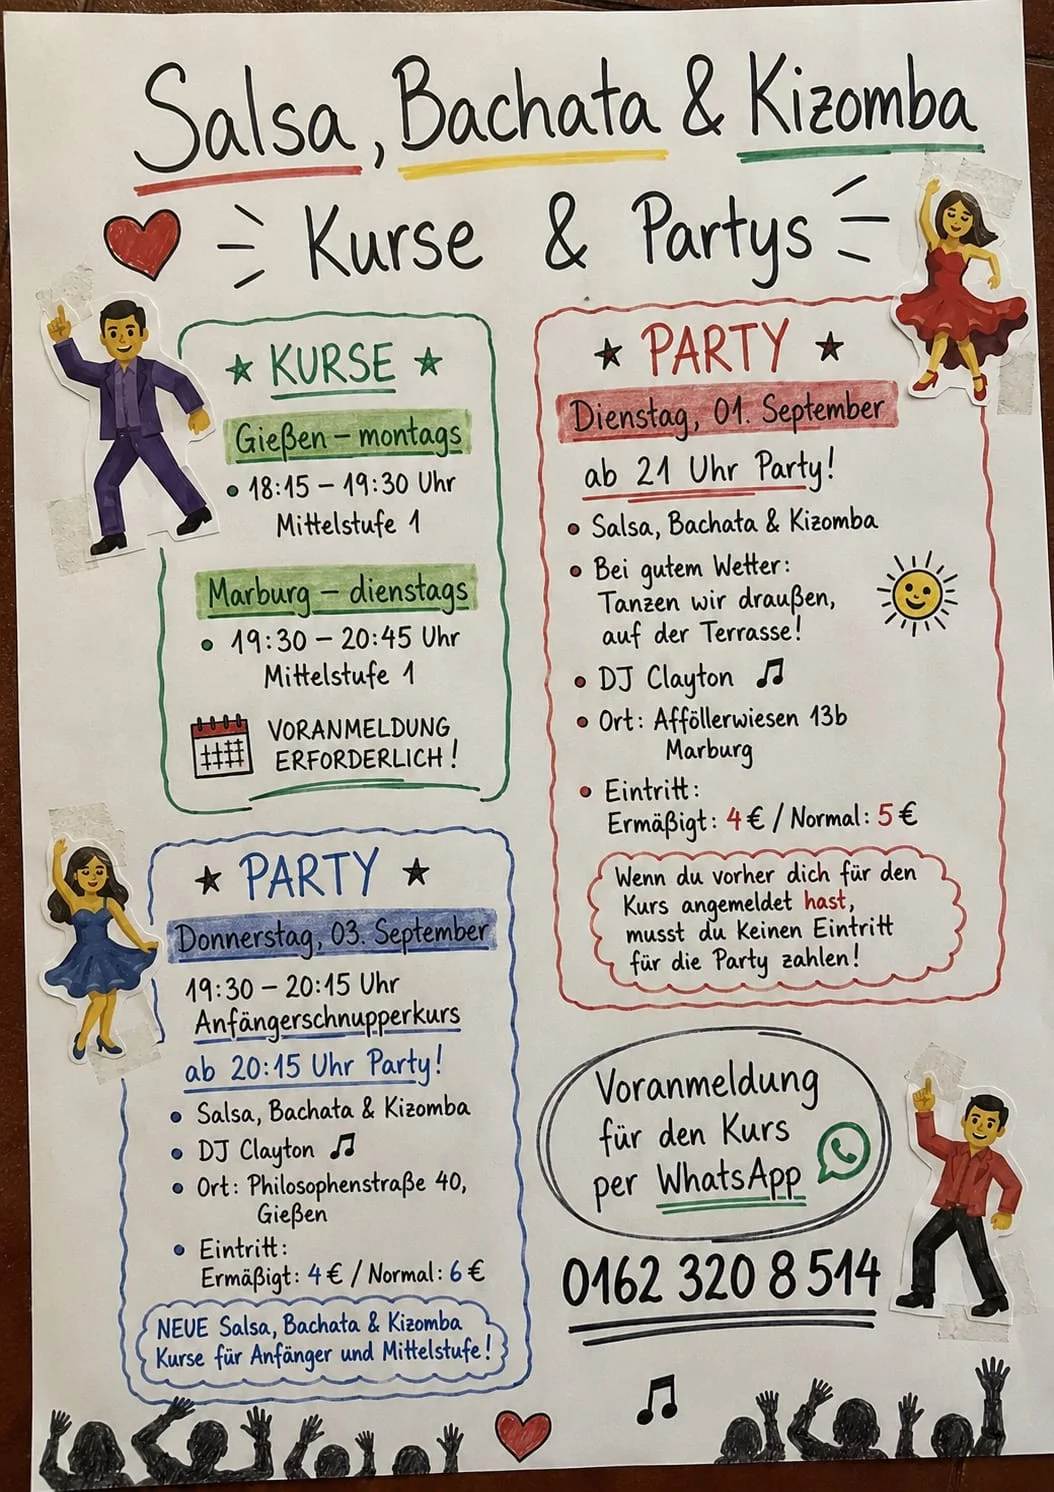 Salsa, Bachata & Kizomba
Kurse & Partys
KURSE
Gießen – montags
18:15 – 19:30 Uhr
Mittelstufe 1
Marburg – dienstags
19:30 – 20:45 Uhr
Mittelstufe 1
VORANMELDUNG
ERFORDERLICH!
PARTY
Dienstag, 01. September
ab 21 Uhr Party!
Salsa, Bachata & Kizomba
Bei gutem Wetter:
Tanzen wir draußen,
auf der Terrasse!
DJ Clayton
Ort: Afföllerwiesen 13b
Marburg
Eintritt:
Ermäßigt: 4€ / Normal: 5€
Wenn du vorher dich für den
Kurs angemeldet hast,
musst du keinen Eintritt
für die Party zahlen!
PARTY
Donnerstag, 03. September
19:30 – 20:15 Uhr
Anfängerschnupperkurs
ab 20:15 Uhr Party!
Salsa, Bachata & Kizomba
DJ Clayton
Ort: Philosophenstraße 40,
Gießen
Eintritt:
Ermäßigt: 4€ / Normal: 6€
NEUE Salsa, Bachata & Kizomba
Kurse für Anfänger und Mittelstufe!
Voranmeldung
für den Kurs
per WhatsApp
0162 320 8 514